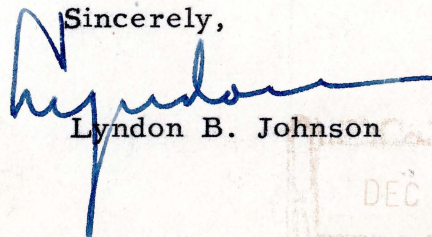 Sincerely,
Lyndon
Lyndon B. Johnson
DEC